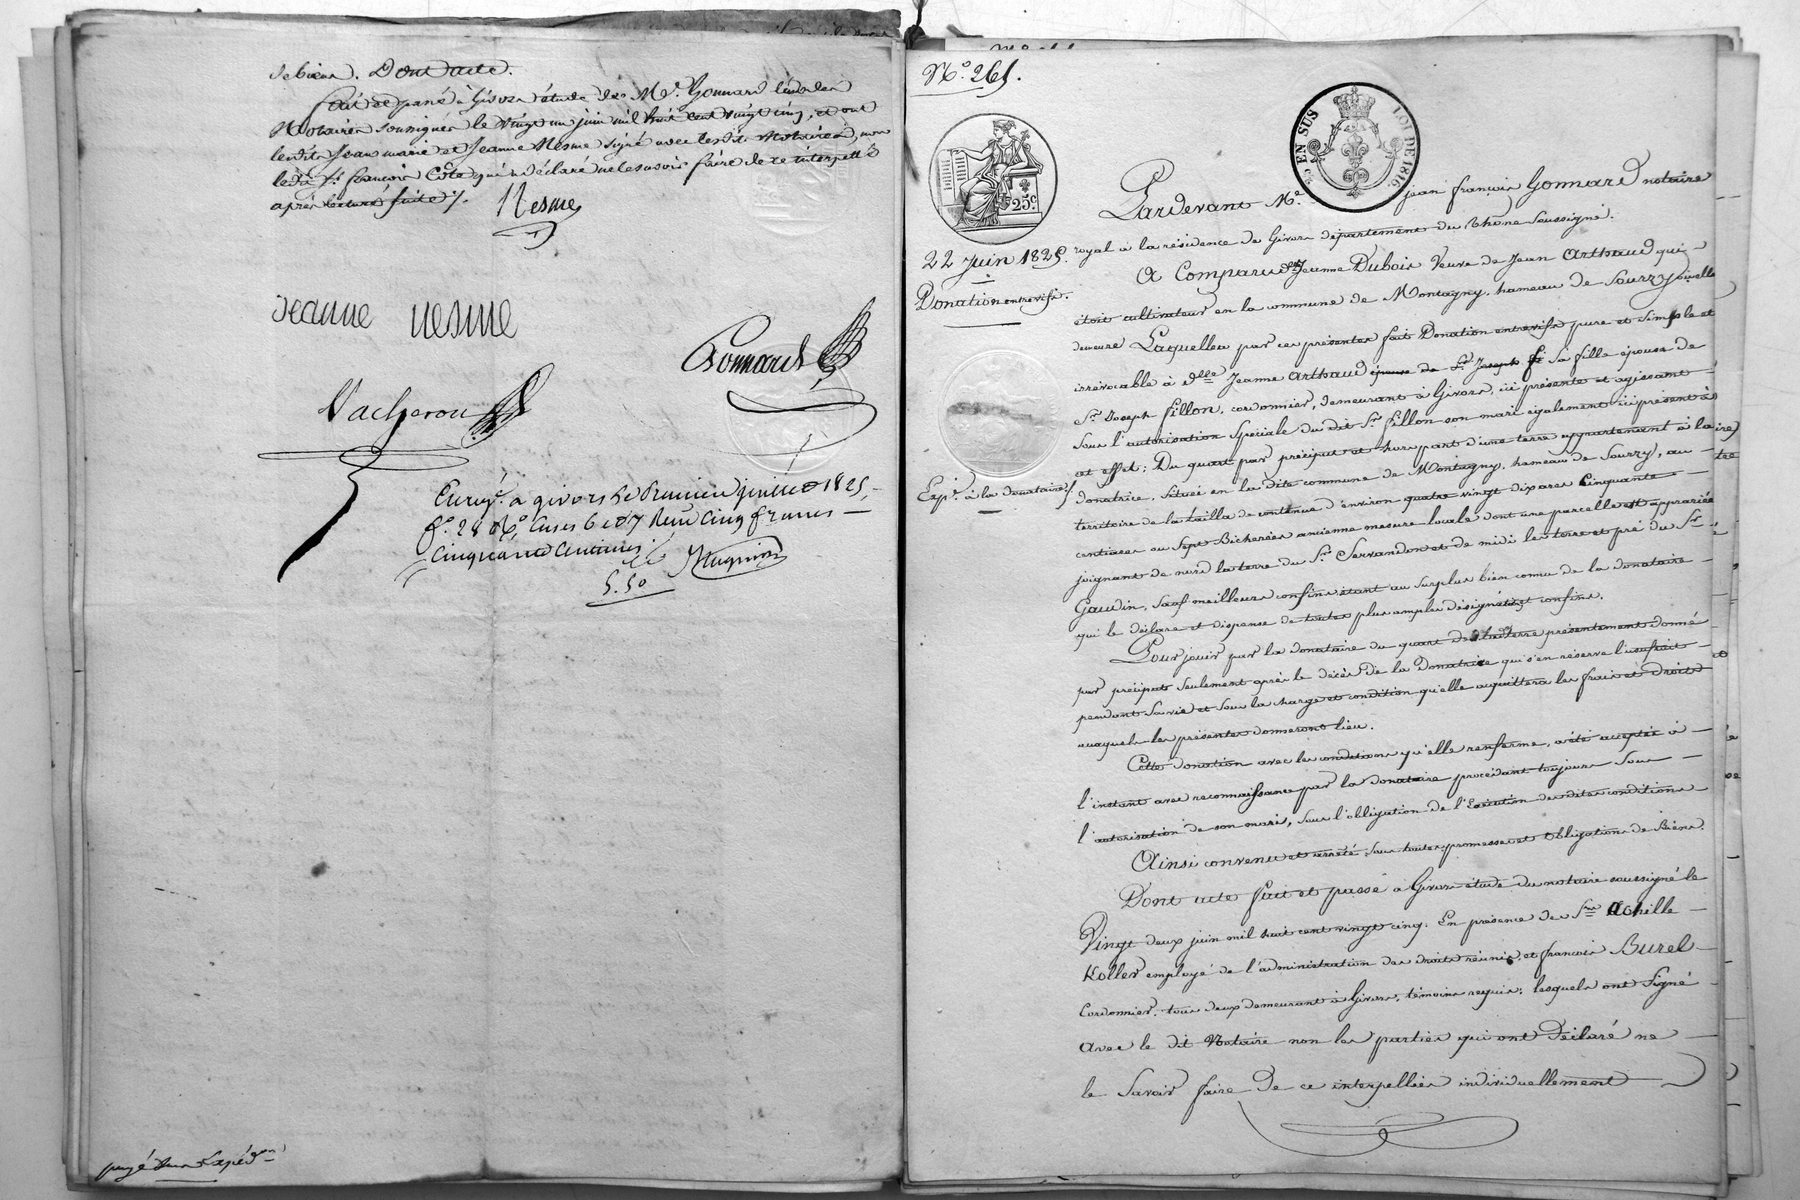 de biens. Dont acte.
fait et passé à Givors étude de Me. Gonnard l'un des
Notaires soussignés le vingt un juin mil huit cent vingt cinq, et ont
lesdits Jean marie et Jeanne Nesme signé avec lesdits Notaires, non
ledit Sr. françois Côte qui a déclaré ne le savoir faire de ce interpellé
après lecture faite ./.
Nesme
Jeanne nesme
Gonnard
Vacheron
Enregt. a givors le premier juillet 1825,
fo. 28 Ro. Cases 6 et 7 Reçu Cinq francs
Cinquante Centimes
5.50
payé pour l'expédon
No. 261.
25 c
EN SUS
LOI DE 1816.
22 Juin 1825.
Donation entrevifs.
Expon. à la donataire
Pardevant Me. jean françois Gonnard notaire
royal à la résidence de Givors département du Rhône Soussigné.
A Comparu Jeanne Dubois Veuve de Jean Arthaud qui
étoit cultivateur en la commune de Montagny, hameau de Sourzy, où elle
demeure Laquelle par ces présentes fait Donation entrevifs pure et simple et
irrévocable à dlle Jeanne Arthaud épouse de Sr. Joseph sa fille épouse de
Sr. Joseph fillon, cordonnier, demeurant à Givors, ici présente et agissant
Sous l'autorisation Spéciale du dit Sr. fillon son mari également ici présent à
cet effet; Du quart par préciput et hors part d'une terre appartenant à la
donatrice, située en la dite commune de Montagny, hameau de Sourzy, au
territoire de la tailla de contenue d'environ quatre vingt dix ares Cinquante
centiares ou Sept Bicherées ancienne mesure locale dont une parcelle est appropriée
joignant de nord la terre du Sr. Servandon et de midi les terre et pré du Sr.
Gaudin, Sauf meilleurs confins étant au Surplus bien connu de la donataire
qui le déclare et dispense de toutes plus amples désignations et confins.
Pour jouir par la donataire du quart de la terre présentement donné
par préciput Seulement après le décès de la Donatrice qui s'en réserve l'usufruit
pendant Sa vie et Sous la charge et condition qu'elle acquittera les frais et Droits
auxquels les présentes donneront lieu.
Cette donation avec les conditions qu'elle renferme, a été acceptée à
l'instant avec reconnaissance par la donataire procédant toujours Sous
l'autorisation de son mari, Sous l'obligation de l'Exécution des dites conditions
Ainsi convenu et arrêté, Sous toutes promesses et Obligations de Biens.
Dont acte fait et passé à Givors étude du notaire soussigné le
Vingt deux juin mil huit cent vingt cinq. En présence de Srs Achille
Koller employé de l'administration des droits réunis, et françois Burel
Cordonnier, tous deux demeurant à Givors, témoins requis; lesquels ont Signé
Avec le dit Notaire non les parties qui ont Déclaré ne
le Savoir faire De ce interpellées individuellement